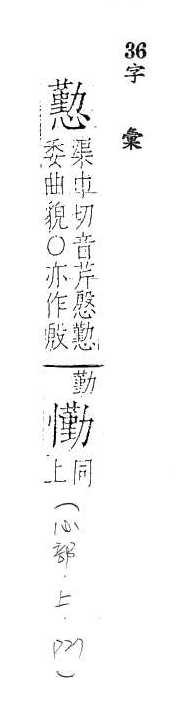 36
字彙
懃
渠巾切音芹慇懃
委曲貌○亦作殷
勤
懄
同
上
(心部.上.